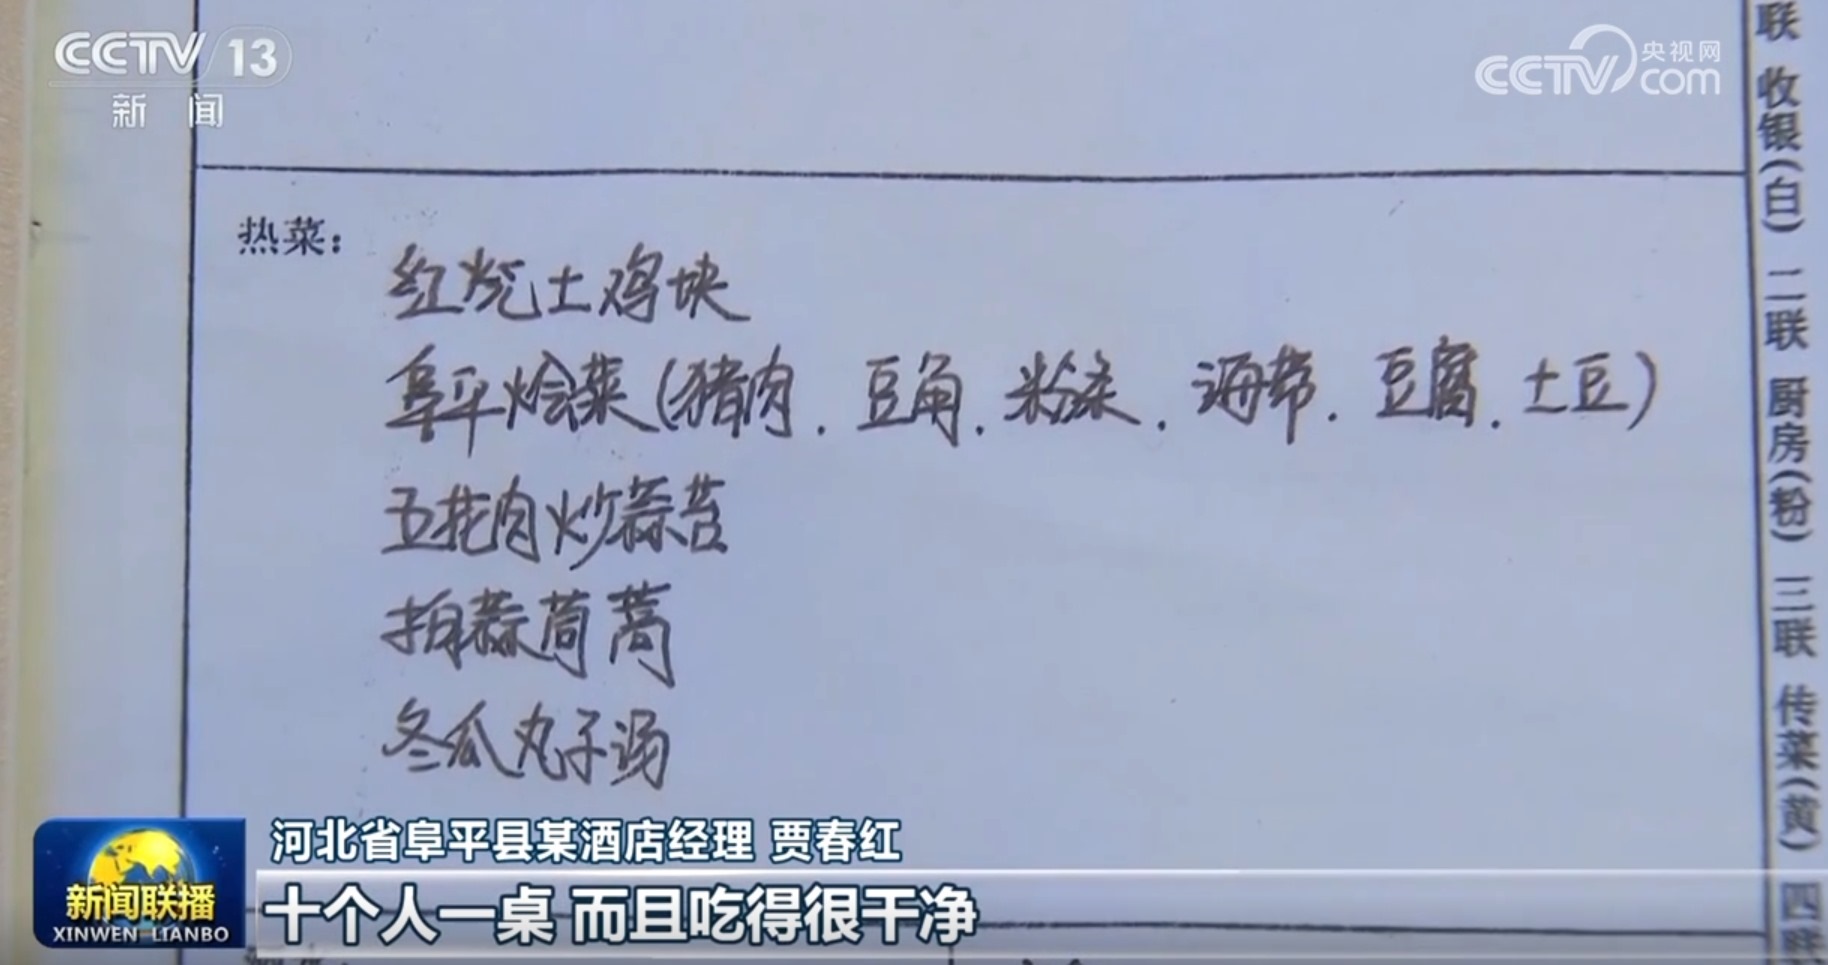 CCTV 13
新闻
央视网
CCTV.com
热菜：
红烧土鸡块
阜平烩菜(猪肉．豆角．粉条．海带．豆腐．土豆)
五花肉炒蒜苔
拍蒜茼蒿
冬瓜丸子汤
联 收银(白) 二联 厨房(粉) 三联 传菜(黄) 四联
河北省阜平县某酒店经理 贾春红
十个人一桌 而且吃得很干净
新闻联播
XINWEN LIANBO